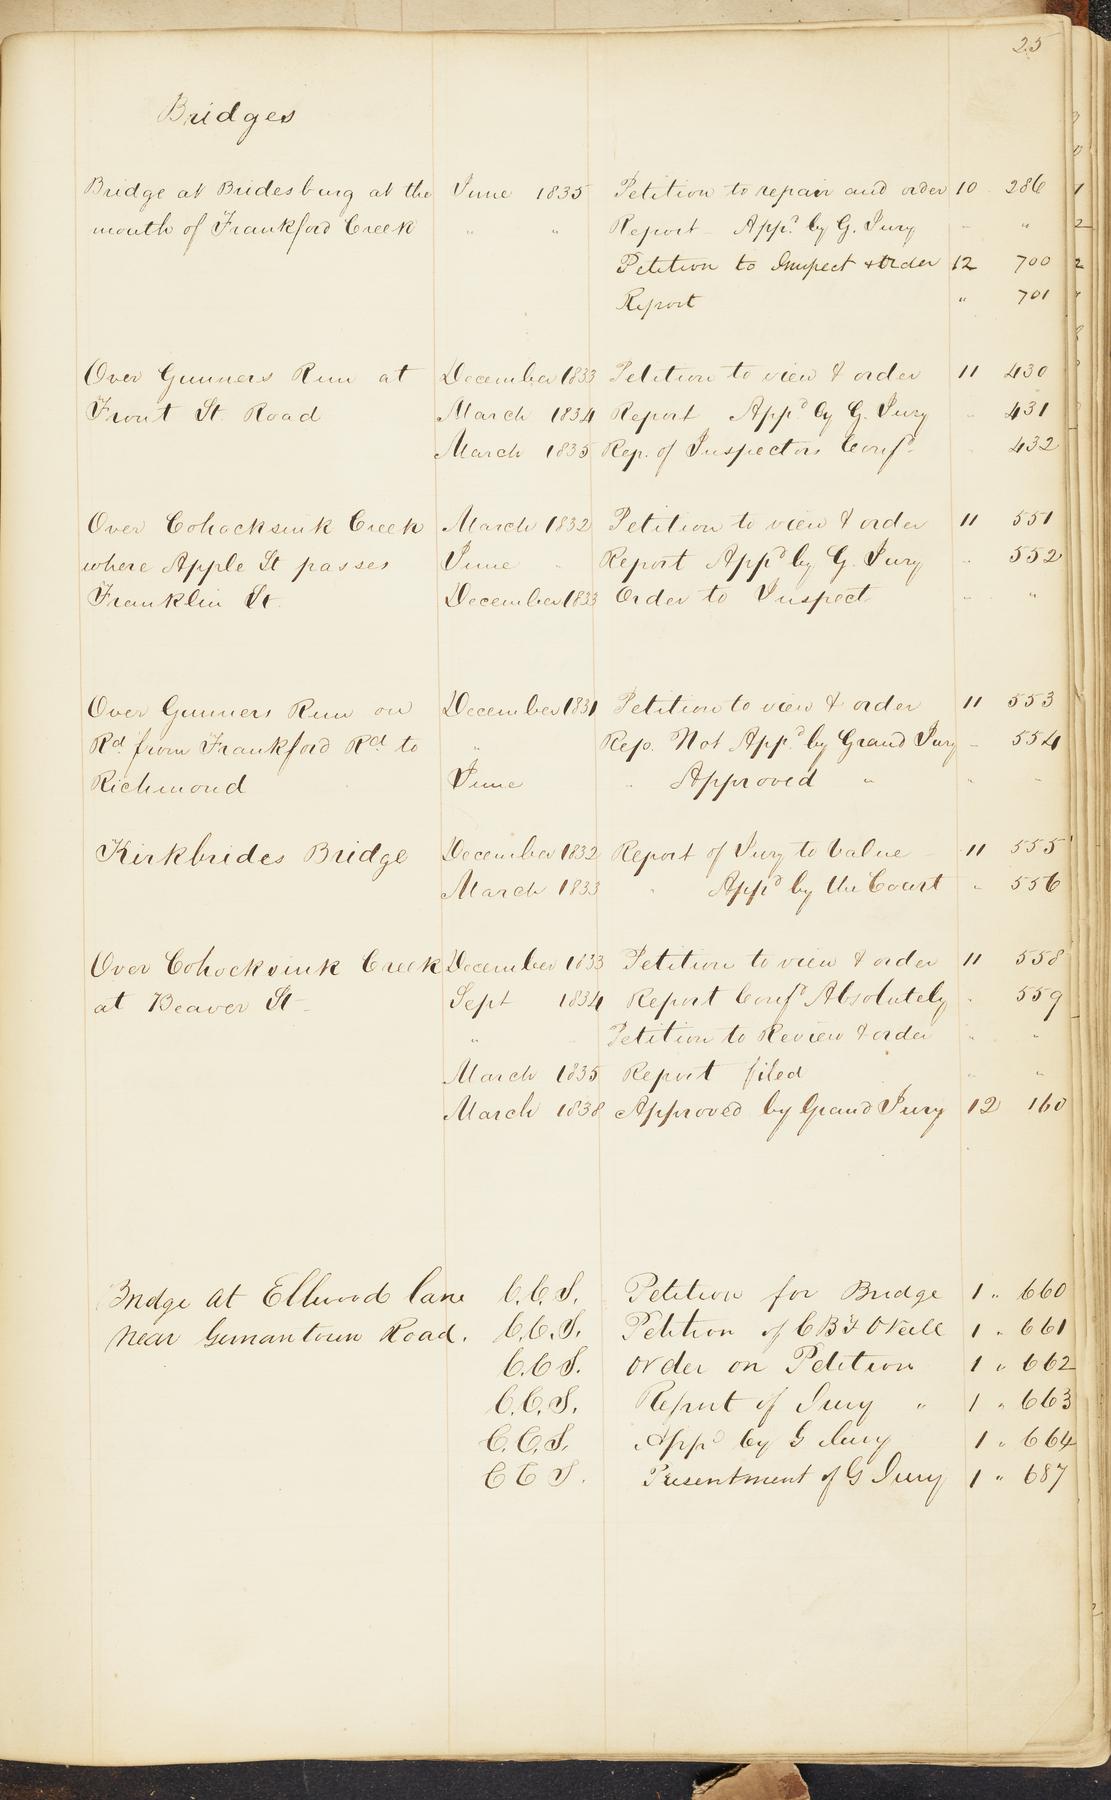 25
Bridges
Bridge at Bridesburg at the June 1835 Petition to repair and order 10 286
mouth of Frankford Creek " " Report - Appd by G. Jury " "
Petition to Inspect & Order 12 700
Report " 701
Over Gunners Run at December 1833 Petition to view & order 11 430
Front St. Road March 1834 Report Appd by G. Jury " 431
March 1835 Rep. of Inspectors Confd " 432
Over Cohocksink Creek March 1832 Petition to view & order 11 551
where Apple St passes June " Report Appd by G. Jury " 552
Franklin St. December 1833 Order to Inspect " "
Over Gunners Run on December 1831 Petition to view & order 11 553
Rd from Frankford Rd to " Rep. Not Appd by Grand Jury " 554
Richmond June " Approved " " "
Kirkbrides Bridge December 1832 Report of Jury to Value - 11 555
March 1833 " Appd by the Court " 556
Over Cohocksink Creek December 1833 Petition to view & order 11 558
at Beaver St - Sept 1834 Report Confd Absolutely " 559
" Petition to Review & order " "
March 1835 Report filed " "
March 1838 Approved by Grand Jury 12 160
Bridge at Ellwood lane C.C.S. Petition for Bridge 1 " 660
near Germantown Road. C.C.S. Petition of 1 " 661
C.C S. Order on Petition 1 " 662
C.C.S. Report of Jury " 1 " 663
C.C.S. Appd by G Jury 1 " 664
C C S. Presentment of G Jury 1 " 687